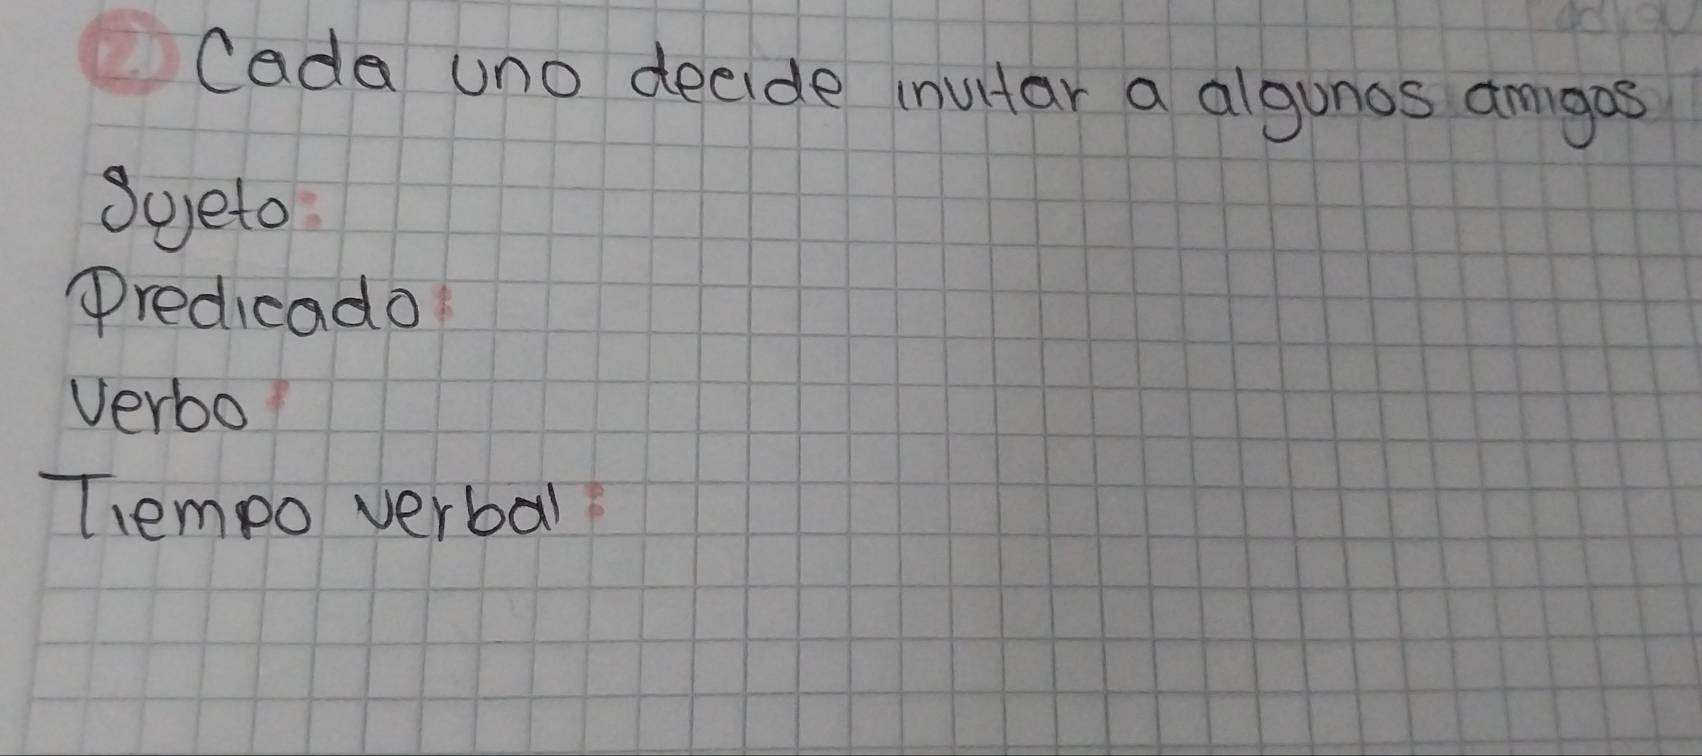 2. Cada uno decide invitar a algunos amigos
Sujeto:
Predicado:
Verbo:
Tiempo verbal: